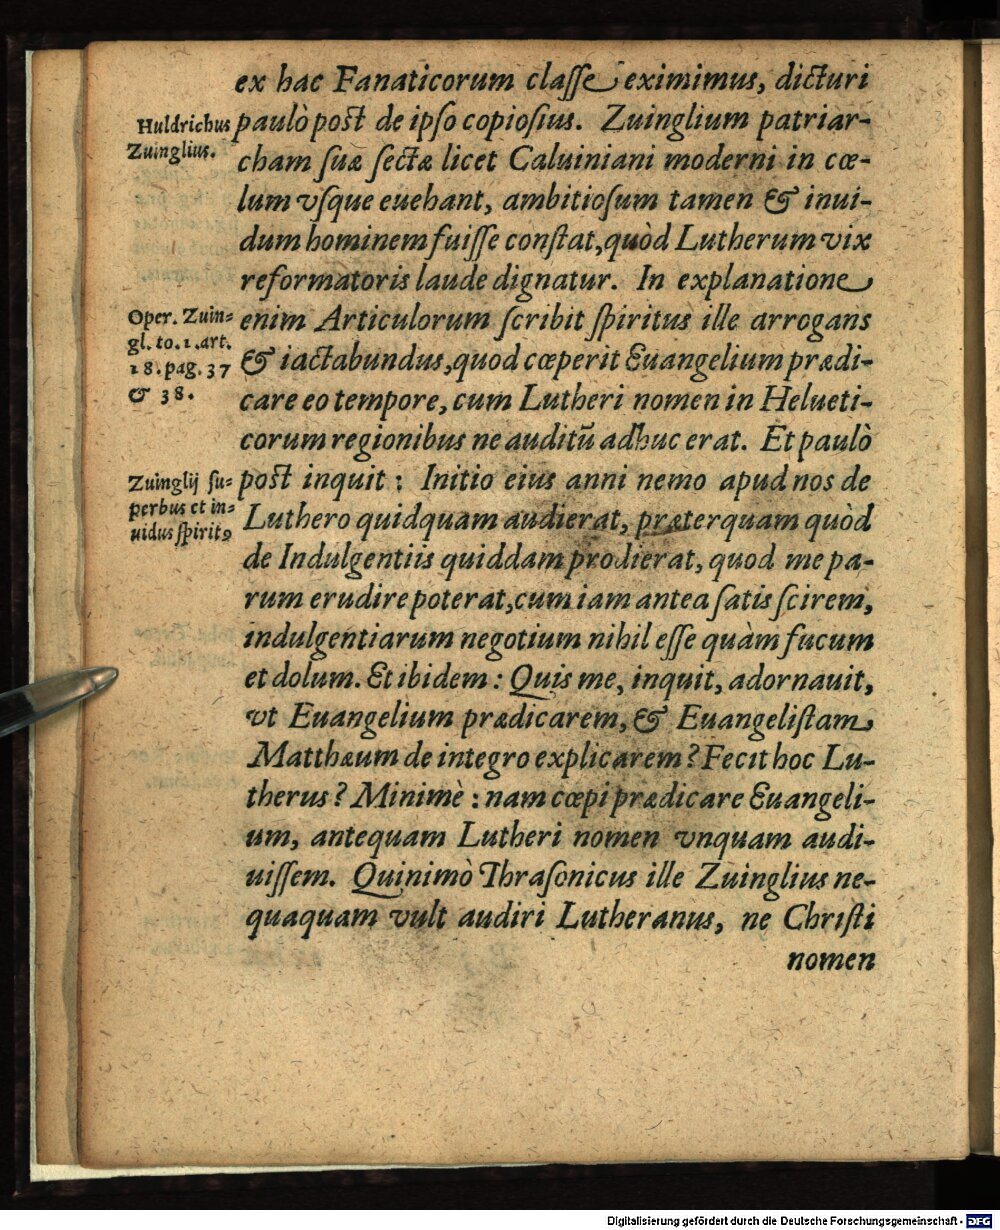 ex hac Fanaticorum classe eximimus, dicturi
Huldrichus
Zuinglius.
paulò post de ipso copiosius. Zuinglium patriar-
cham suæ sectæ licet Caluiniani moderni in cœ-
lum vsque euehant, ambitiosum tamen & inui-
dum hominem fuisse constat, quòd Lutherum vix
reformatoris laude dignatur. In explanatione
Oper. Zuin=
gl. to. 1. art.
18. pag. 37
& 38.
enim Articulorum scribit spiritus ille arrogans
& iactabundus, quod cœperit Euangelium prædi-
care eo tempore, cum Lutheri nomen in Helueti-
corum regionibus ne auditũ adhuc erat. Et paulò
Zuinglij su=
perbus et in=
uidus spiritꝰ
post inquit: Initio eius anni nemo apud nos de
Luthero quidquam audierat, præterquam quòd
de Indulgentiis quiddam prodierat, quod me pa-
rum erudire poterat, cum iam antea satis scirem,
indulgentiarum negotium nihil esse quàm fucum
et dolum. Et ibidem: Quis me, inquit, adornauit,
vt Euangelium prædicarem, & Euangelistam
Matthæum de integro explicarem? Fecit hoc Lu-
therus? Minimè: nam cœpi prædicare Euangeli-
um, antequam Lutheri nomen vnquam audi-
uissem. Quinimò Thrasonicus ille Zuinglius ne-
quaquam vult audiri Lutheranus, ne Christi
nomen
Digitalisierung gefördert durch die Deutsche Forschungsgemeinschaft - DFG